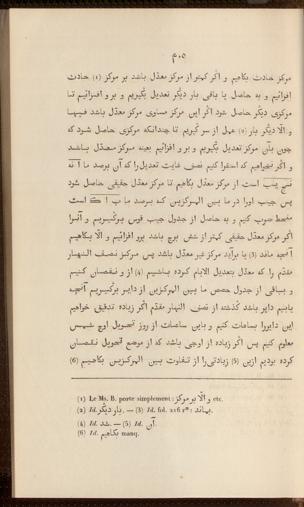 ٣٠٥
مركز حادث بكاهيم و اگر كمتر از مركز معدّل باشد بر مركز (1) حادث
افزائيم و به حاصل يا باقى بار ديگر تعديل بگيريم و بر و افزائيم تا
مركزى ديگر حاصل شود اگر اين مركز مساوى مركز معدّل باشد فبها
و الّا ديگر بار (2) عمل از سر گيريم تا چندانكه مركزى حاصل شود كه
چون بآن مركز تعديل بگيريم و بر و افزائيم بعينه مركز معدّل باشد
و اگر نخواهيم كه استقرا كنيم نصف غايت تعديل را كه آن برصد ما
است از مركز معدّل بكاهيم تا مركز معدّل حقيقى حاصل شود
پس جيب اورا در ما بين المركزين كه برصد ما است
منحط ضرب كنيم و به حاصل از جدول جيب قوس برگيريم و آنرا
اگر مركز معدّل حقيقى كمتر از شش برج باشد برو افزائيم و الّا بكاهيم
آنچه ماند (3) يا برآيد مركز غير معدّل باشد پس مركز نصف النهار
مقدّم را كه معدّل بتعديل الايام كرده باشيم (4) از و نقصان كنيم
و بباقى از جدول حصص ما بين المركزين از داير برگيريم آنچه
يابيم داير باشد گذشته از نصف النهار مقدّم اگر زياده تدقيق خواهيم
اين دايررا بساعات كنيم و باين ساعات از روز تحويل اوج شمس
معلوم كنيم پس اگر زياده از اوجى باشد كه از موضع تحويل نقصان
كرده بوديم ازين (5) زيادتى را از تفاوت بين المركزين بكاهيم (6)
(1) Le Ms. B. porte simplement : و الّا بر مركز etc.
(2) Id. بار ديگر. — (3) Id. fol. 216 r° : بماند.
(4) Id. شد. — (5) Id. آن.
(6) Id. بكاهيم manq.